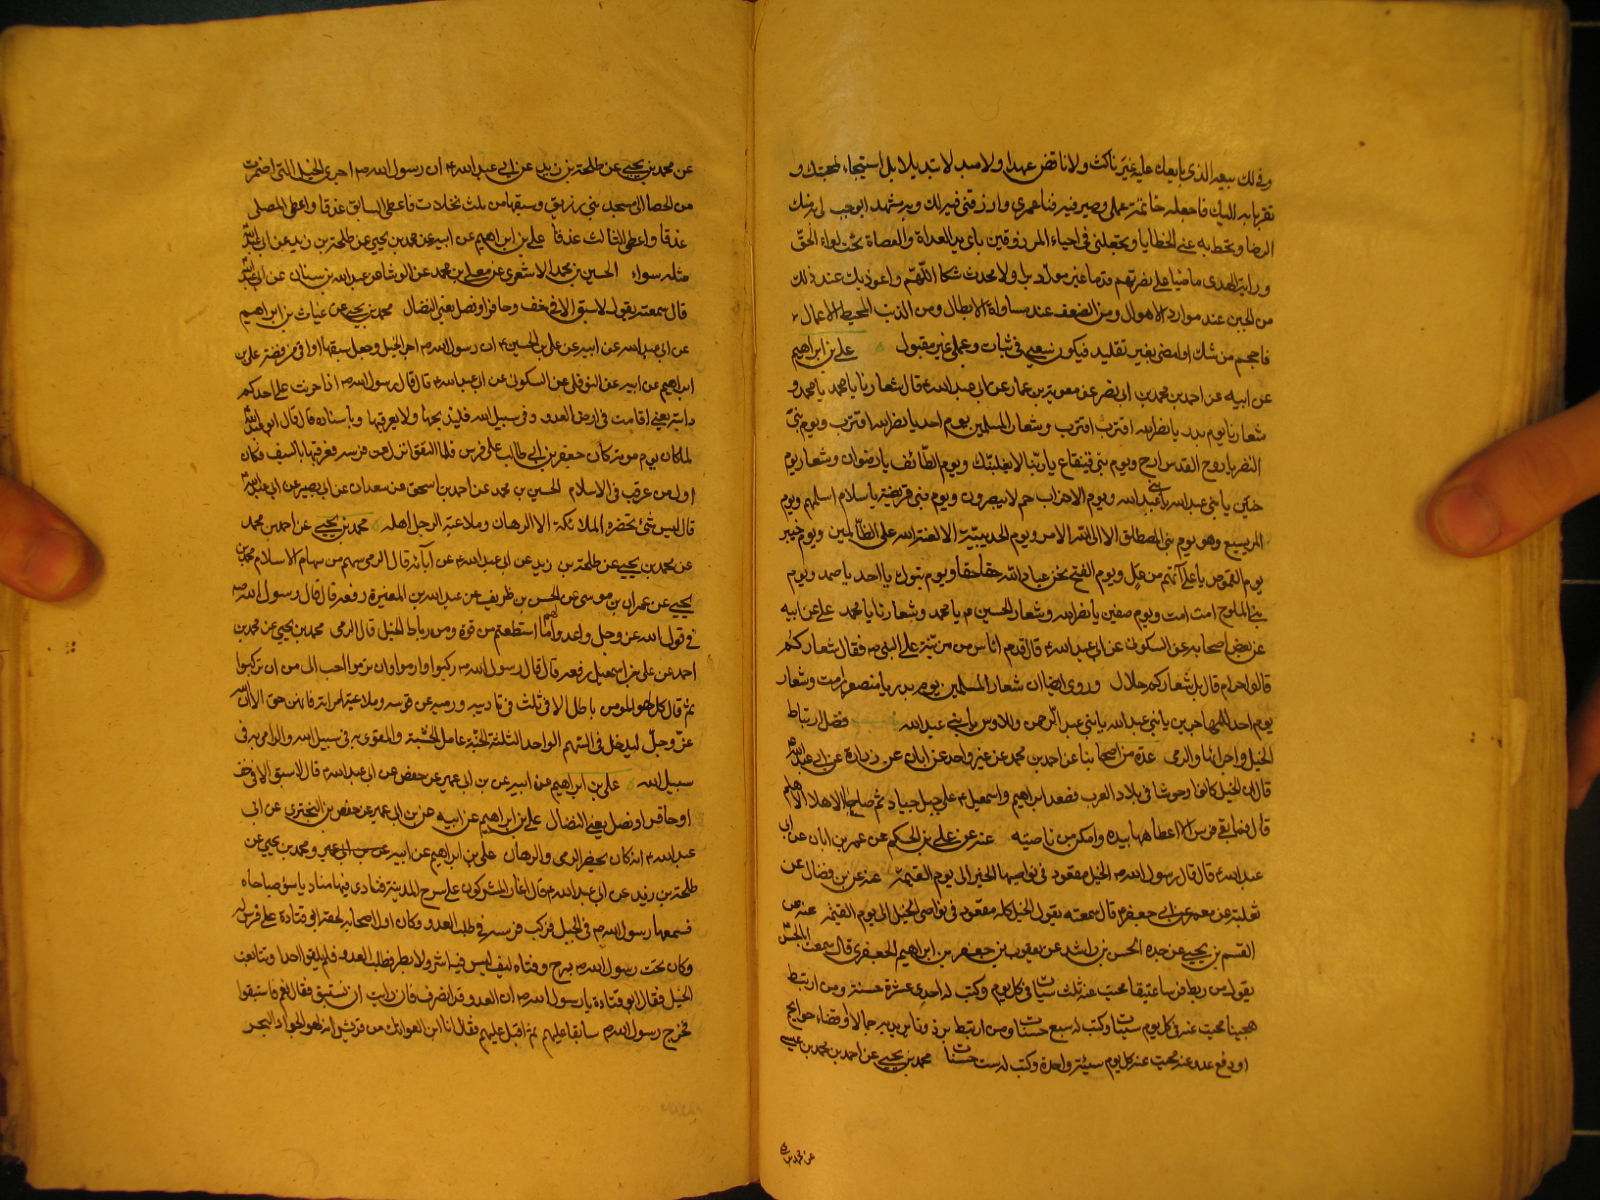 وفى لك ببيعه الذى بايعك عليه غير ناكث ولا ناقض عهدا ولا مبدلا تبديلا بل استيجابا لمحبتك و
تقربا به اليك فاجعله خاتمة عملى وصير فيه فناء عمرى وارزقنى فيه لك وبه مشهدا توجب لى به منك
الرضا وتحط به عنى الخطايا وتجعلنى فى احياء المرزوقين بايدى العداة والعصاة تحت لواء الحق
وراية الهدى ماضيا على نصرتهم قدما غير مول دبرا ولا محدث شكا اللهم واعوذ بك عند ذلك
من الجبن عند موارد الاهوال ومن الضعف عند مساورة الابطال ومن الذنب المحبط للاعمال
فاحجم من شك او امضى بغير تقليد فيكون سعيى فى تباب وعملى غير مقبول على بن ابراهيم
عن ابيه عن احمد بن محمد بن ابى نصر عن معوية بن عمار عن ابى عبد الله ع قال شعارنا يا محمد يا محمد و
شعارنا يوم بدر يا نصر الله اقترب اقترب وشعار المسلمين يوم احد يا نصر الله اقترب ويوم بنى
النضر يا روح القدس ارح ويوم بنى قينقاع يا ربنا لا يغلبنك ويوم الطائف يا رضوان وشعار يوم
حنين يا بنى عبد الله يا بنى عبد الله ويوم الاحزاب حم لا يبصرون ويوم بنى قريضة يا سلام اسلمهم ويوم
المريسيع وهو يوم بنى المصطلق الا الى الله الامر ويوم الحديبية الا لعنة الله على الظالمين ويوم خيبر
يوم القموص يا على آتهم من عل ويوم الفتح نحن عباد الله حقا حقا ويوم تبوك يا احد يا صمد ويوم
بنى الملوح امت امت ويوم صفين يا نصر الله وشعار الحسين ع يا محمد وشعارنا يا محمد على عن ابيه
عن بعض اصحابه عن السكونى عن ابى عبد الله ع قال قدم اناس من مزينة على النبى ص فقال شعاركم
قالوا حرام قال بل شعاركم حلال وروى ايضا ان شعار المسلمين يوم بدر يا منصور امت وشعار
يوم احد للمهاجرين يا بنى عبد الله يا بنى عبد الرحمن وللاوس يا بنى عبد الله باب فضل ارتباط
الخيل واجرائها والرمى عدة من اصحابنا عن احمد بن محمد عن غير واحد عن ابان عن زرارة عن ابى عبد الله
قال ان الخيل كانوا وحوشا فى بلاد العرب فصعد ابراهيم واسمعيل ع على جبل جياد ثم صاحا الا هلا الا هلم
قال فما بقى فرس الا اعطاهما بيده وامكن من ناصيته عنه عن على بن الحكم عن عمر بن ابان عن ابى
عبد الله ع قال قال رسول الله ص الخيل معقود فى نواصيها الخير الى يوم القيمة عنه عن بن فضال عن
ثعلبة عن معمر عن ابى جعفر ع قال سمعته يقول الخيل كله معقود فى نواصى الخيل الى يوم القيمة عنه عن
القسم بن يحيى عن جده الحسن بن راشد عن يعقوب بن جعفر بن ابراهيم الجعفرى قال سمعت ابا الحسن
يقول من ربط فرسا عتيقا محيت عنه ثلث سيئات فى كل يوم وكتب له احدى عشرة حسنة ومن ارتبط
هجينا محيت عنه فى كل يوم سيئتان وكتب له سبع حسنات ومن ارتبط برذونا يريد به جمالا او قضاء حوايج
او دفع عدو عنه محيت عنه كل يوم سيئة واحدة وكتب له ست حسنات محمد بن يحيى عن احمد بن محمد بن عيسى
عن محمد بن
عن محمد بن يحيى عن طلحة بن زيد عن ابى عبد الله ع ان رسول الله ص اجرى الخيل التى اضمرت
من الحصا الى مسجد بنى زريق وسبقها من ثلث نخلات فاعطى السابق عذقا واعطى المصلى
عذقا واعطى الثالث عذقا على بن ابراهيم عن ابيه عن محمد بن يحيى عن طلحة بن زيد عن ابى عبد الله
مثله سواء الحسين بن محمد الاشعرى عن معلى بن محمد عن الوشاء عن عبد الله بن سنان عن ابى عبد الله
قال سمعته يقول لا سبق الا فى خف او حافر او نصل يعنى النضال محمد بن يحيى عن غياث بن ابراهيم
عن ابى عبد الله عن ابيه عن على بن الحسين ع ان رسول الله ص اجرى الخيل وجعل سبقها اواقى من فضة على بن
ابراهيم عن ابيه عن النوفلى عن السكونى عن ابى عبد الله ع قال قال رسول الله ص اذا حرنت على احدكم
دابته يعنى اقامت فى ارض العدو وفى سبيل الله فليذبحها ولا يعرقبها وباسناده قال قال ابو عبد الله
لما كان يوم موتة كان جعفر بن ابى طالب على فرس فلما التقوا نزل عن فرسه فعرقبها بالسيف فكان
اول من عرقب فى الاسلام الحسين بن محمد عن احمد بن اسحق عن سعدان عن ابى بصير عن ابى عبد الله
قال ليس شئ تحضره الملائكة الا الرهان وملاعبة الرجل اهله محمد بن يحيى عن احمد بن محمد
عن محمد بن يحيى عن طلحة بن زيد عن ابى عبد الله ع عن آبائه قال الرمى سهم من سهام الاسلام محمد بن
يحيى عن عمران بن موسى عن الحسن بن ظريف عن عبد الله بن المغيرة رفعه قال قال رسول الله ص
فى قول الله عز وجل واعدوا لهم ما استطعتم من قوة ومن رباط الخيل قال الرمى محمد بن يحيى عن محمد بن
احمد عن على بن اسمعيل رفعه قال قال رسول الله ص اركبوا وارموا وان ترموا احب الى من ان تركبوا
ثم قال كل لهو المؤمن باطل الا فى ثلث فى تاديبه ورميه عن قوسه وملاعبة امراته فانهن حق الا ان الله
عز وجل ليدخل فى السهم الواحد الثلثة الجنة عامل الخشبة والمقوى به فى سبيل الله والرامى به فى
سبيل الله على بن ابراهيم عن ابيه عن بن ابى عمير عن حفص عن ابى عبد الله ع قال لا سبق الا فى خف
او حافر او نصل يعنى النضال على بن ابراهيم عن ابيه عن بن ابى عمير عن حفص بن البخترى عن ابى
عبد الله ع انه كان يحضر الرمى والرهان على بن ابراهيم عن ابيه عن بن ابى عمير ومحمد بن يحيى عن
طلحة بن زيد عن ابى عبد الله ع قال اغار المشركون على سرح المدينة فنادى فيها مناد يا سوء صباحاه
فسمعها رسول الله ص فى الخيل فركب فرسه فى طلب العدو وكان اول اصحابه لحقه ابو قتادة على فرس له
وكان تحت رسول الله ص سرج دفتاه ليف ليس فيه اشر ولا بطر فطلب العدو فلم يلقوا احدا وتتابعت
الخيل فقال ابو قتادة يا رسول الله ص ان العدو قد انصرف فان رايت ان نستبق فقال نعم فاستبقوا
فخرج رسول الله ص سابقا عليهم ثم اقبل عليهم فقال انا ابن العواتك من قريش انه لهو الجواد البحر